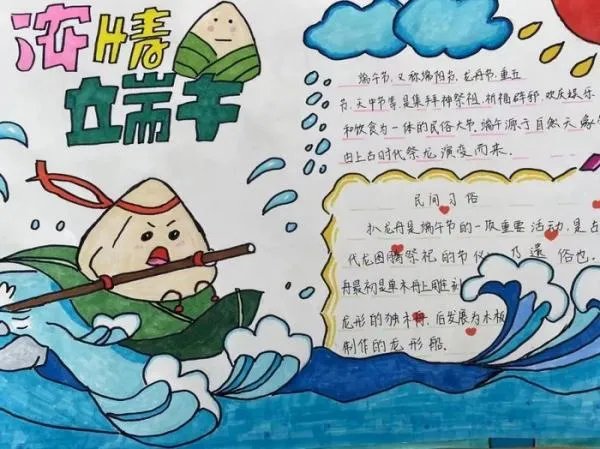 浓情
端午
端午节,又称端阳节、龙舟节、重五
节、天中节等是集拜神祭祖、祈福辟邪、欢庆娱乐
和饮食为一体的民俗大节。端午源于自然天象
由上古时代祭龙演变而来。
民间习俗
扒龙舟是端午节的一项重要活动,是古
代龙图腾祭祀的节仪,乃遗俗也。
舟最初是单木舟上雕刻
龙形的独木舟,后发展为木板
制作的龙形船。